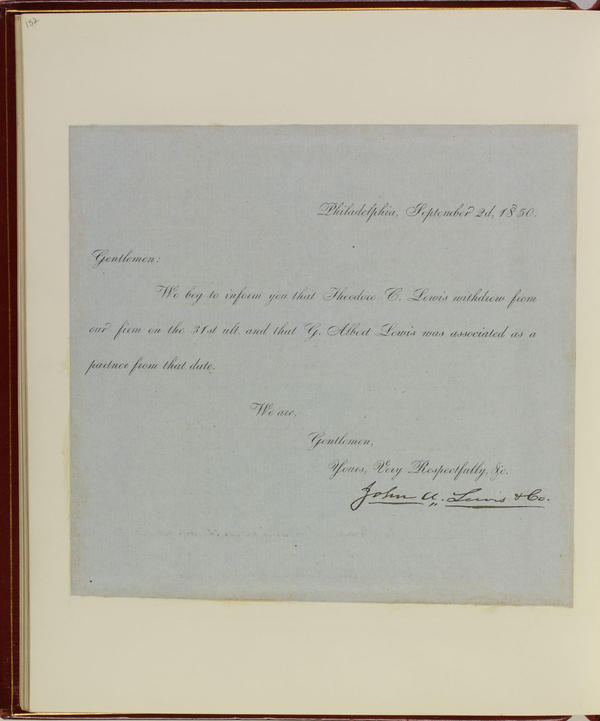 152
Philadelphia, September 2d, 1850.
Gentlemen:
We beg to inform you that Theodore C. Lewis withdrew from
our firm on the 31st ult. and that G. Albert Lewis was associated as a
partner from that date.
We are,
Gentlemen,
Yours, Very Respectfully, &c.
John A. Lewis & Co.